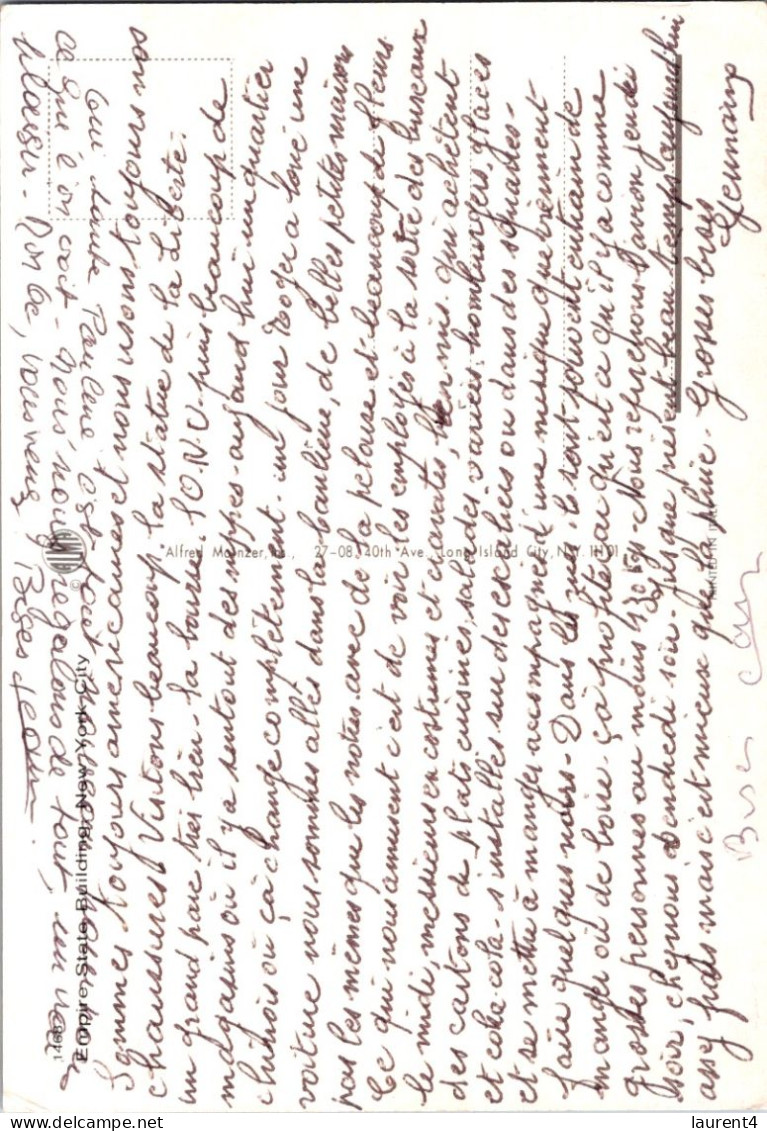 Oui tante Pauline c'est
ce que l'on croit - nous nous régalons de tout, un vrai
plaisir.
Sommes toujours américaines et nous usons toujours nos
chaussures. Visitons beaucoup la statue de la Liberté.
un grand parc très bien - la bourse - l'O.N.U - puis beaucoup de
magasins où il y a surtout des nippes - aujourd'hui un quartier
chinois où çà change complètement - un jour Roger a loué une
voiture nous sommes allés dans la banlieue, de belles petites maisons
pas les mêmes que les nôtres avec de la pelouse et beaucoup de fleurs.
Ce qui nous amusent c'est de voir les employés à la sortie des bureaux
le midi, messieurs en costumes et cravates, bien mis. qui achètent
des cartons de plats cuisinés, salades variées, hamburgers, glaces
et coka-cola - s'installes sur des escaliers ou dans des squares -
et se mettre à manger accompagnés d'une musique que viennent
faire quelques noirs - Dans les rues, ils sont souvent entrain de
manger où de boire - çà profite car qu'est ce qu'il y a comme
grosses personnes au moins 130 kgs - Nous reprenons l'avion jeudi
soir, chez nous vendredi soir - jusque présent beau temps aujourd'hui
assez frais mais c'est mieux que la pluie - Grosses bises
Germaine
Alfred Mainzer, Inc., 27-08 40th Ave., Long Island City, N.Y. 11101
Empire State Building, New York City
laurent4